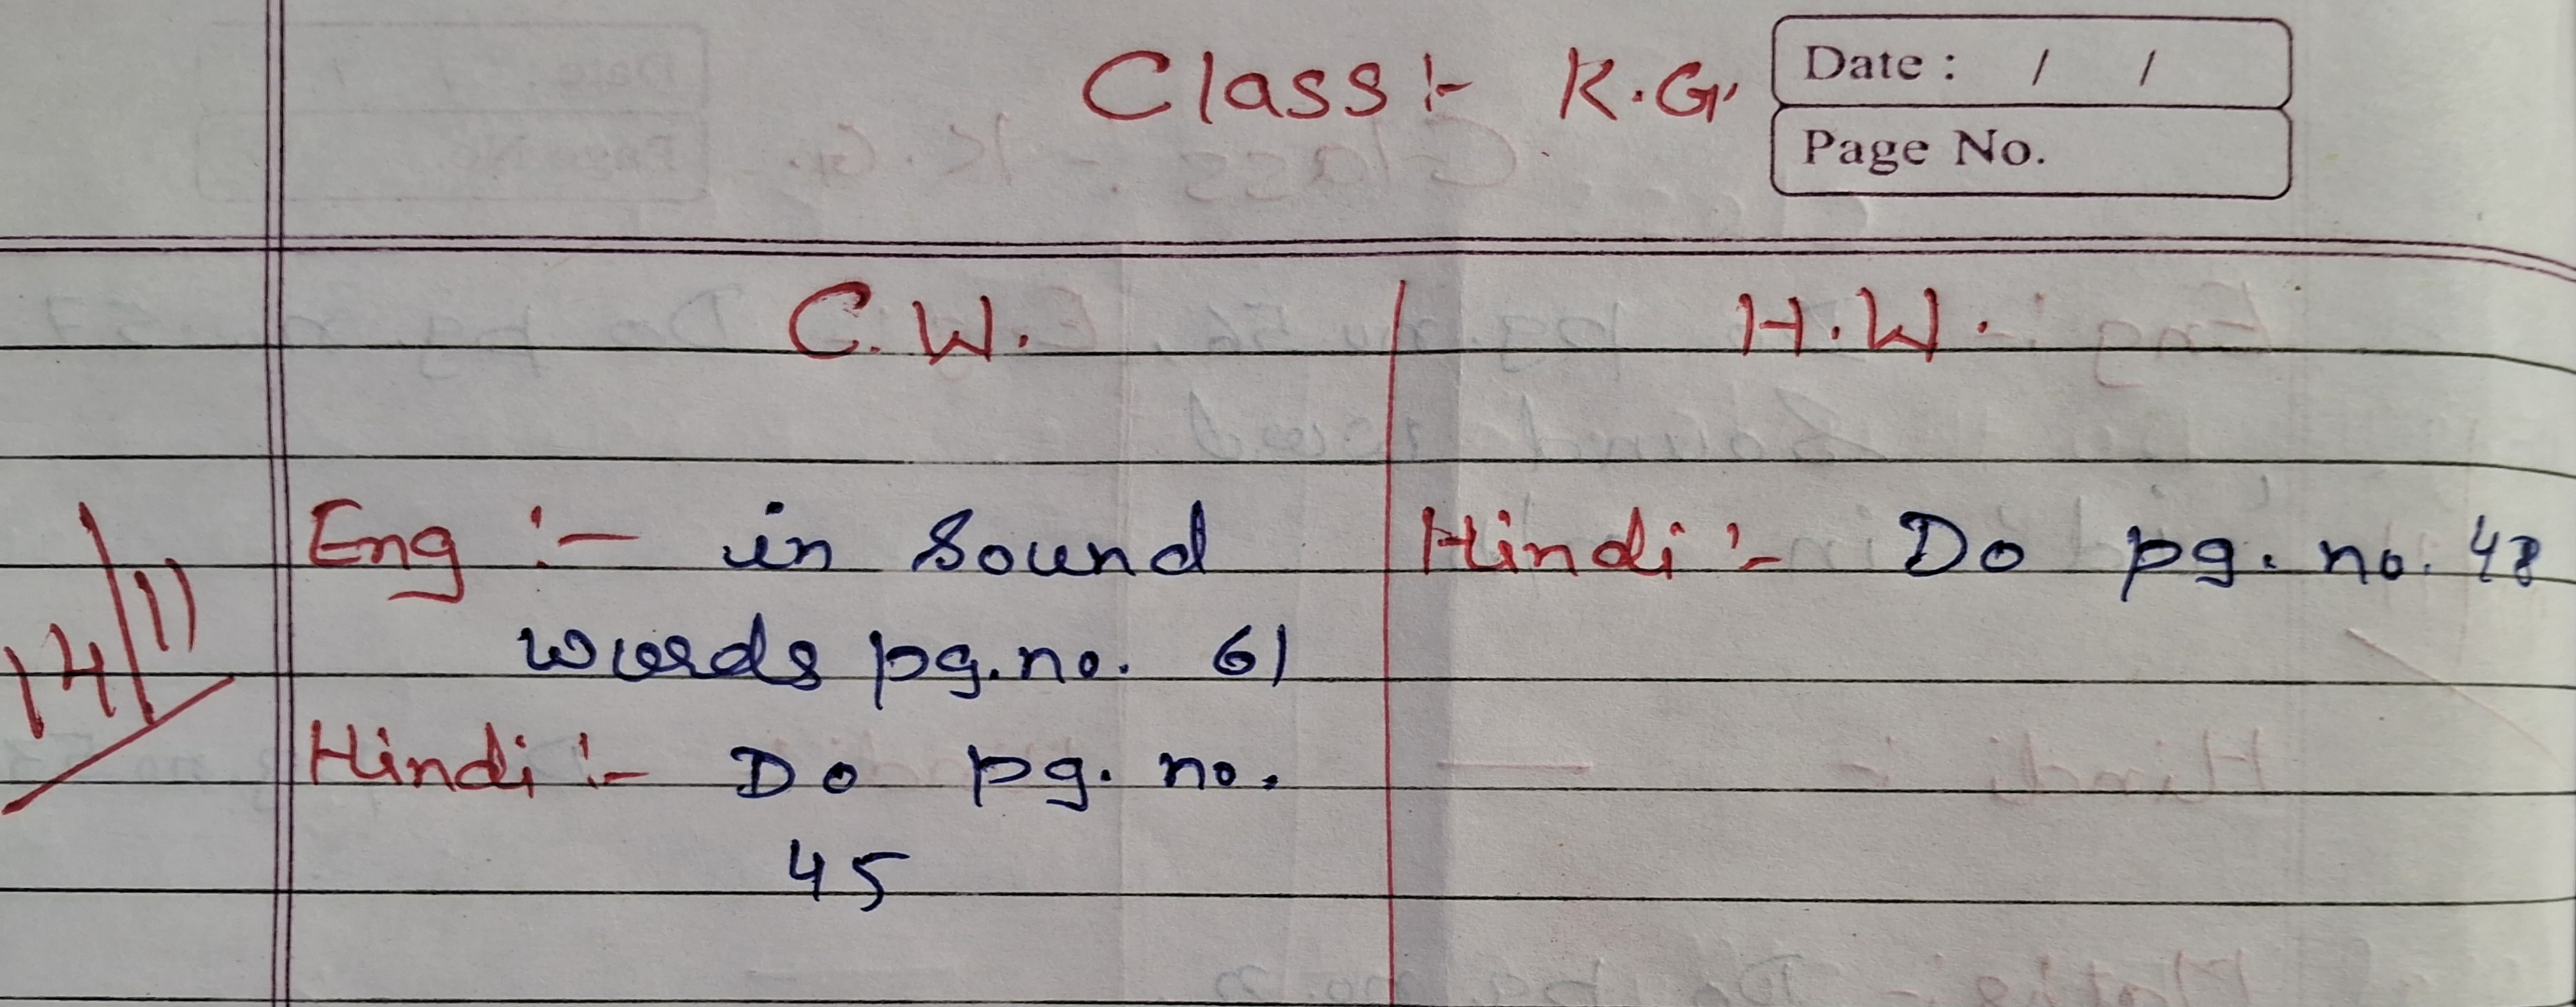 Class :- K.G.
Date : / /
Page No.
C.W.
H.W.
14/11
Eng :- in Sound
words pg. no. 61
Hindi :- Do pg. no.
45
Hindi :- Do pg. no. 48